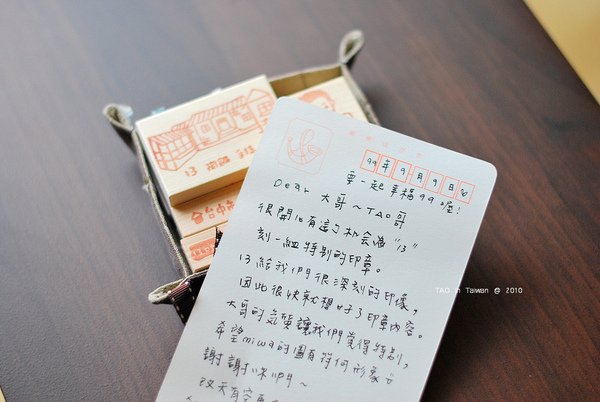 13 咖啡 主雜
台中
99年9月9日
要一起幸福99喔!
Dear 大哥~TAO哥
很開心有這個機會為"13"
刻一組特別的印章。
13給我們很深刻的印象,
因此很快就想好了印章內容。
大哥的氣質讓我們覺得特別,
希望miwa的圖有符何形象
謝謝咪們~
改天有空
TAO in Taiwan @ 2010